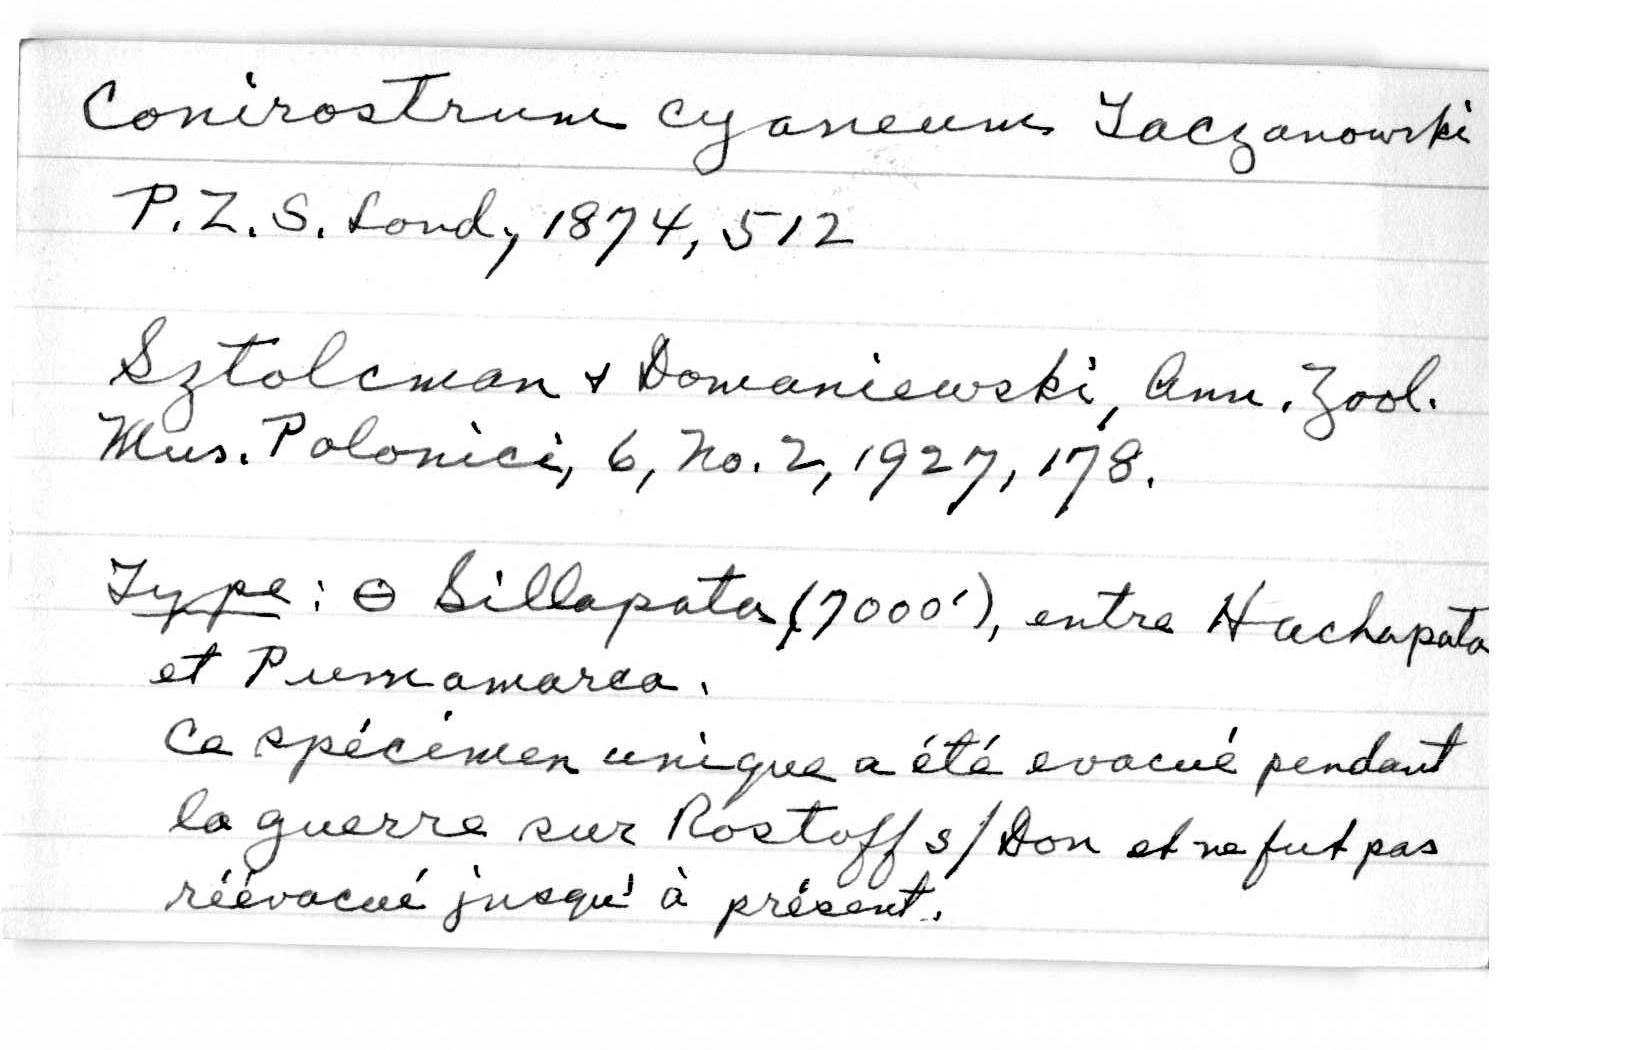 Conirostrum cyaneum Taczanowski
P.Z.S. Lond., 1874, 512
Sztolcman & Domaniewski, Ann. Zool.
Mus. Polonici, 6, No. 2, 1927, 178.
Type: ⊖ Sillapata (7000'), entre Hachapata
et Pumamarca.
Ce spécimen unique a été evacué pendant
la guerre sur Rostoff s/Don et ne fut pas
réévacué jusqu'à présent.